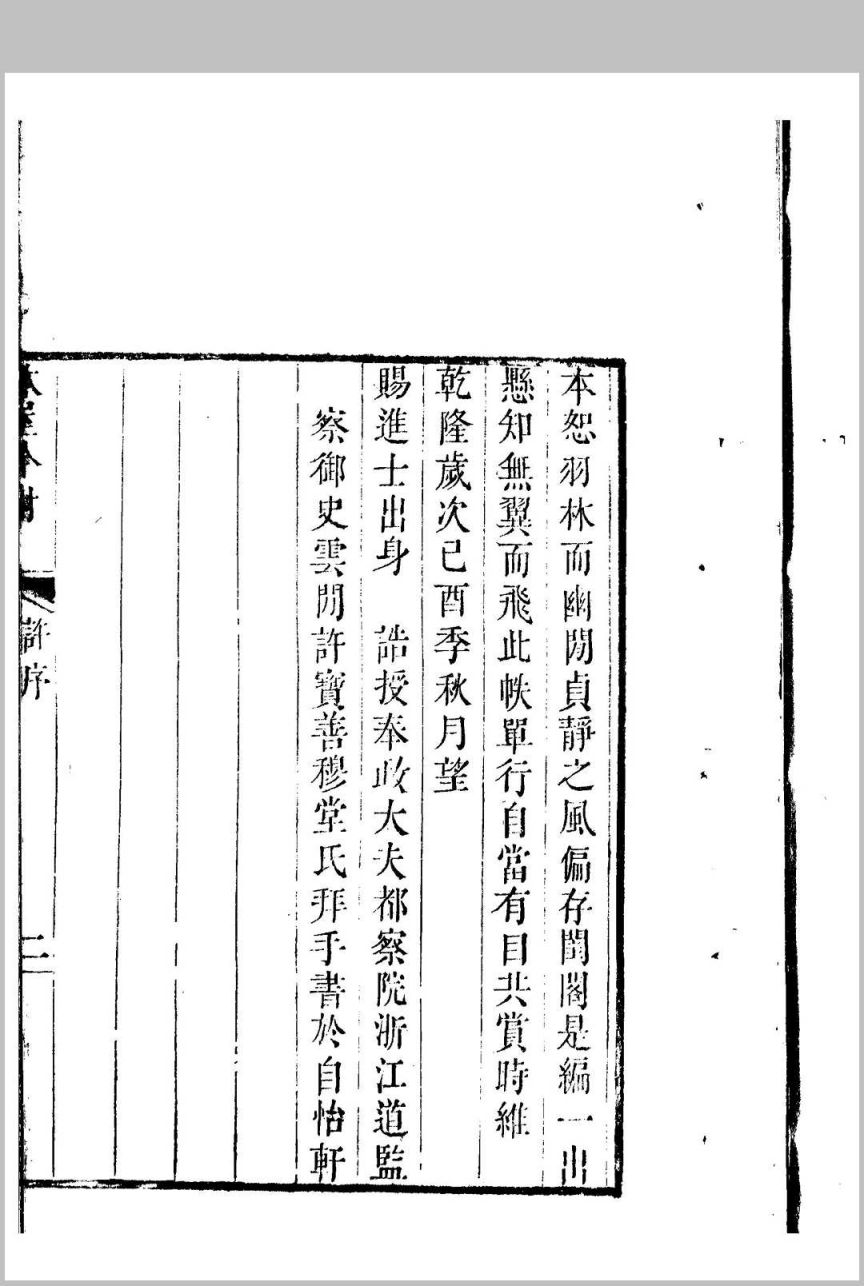 本恕羽林而幽閒貞靜之風偏存閨閣是編一出
懸知無翼而飛此帙單行自當有目共賞時維
乾隆歲次己酉季秋月望
賜進士出身　誥授奉政大夫都察院浙江道監
察御史雲間許寶善穆堂氏拜手書於自怡軒
許序
二